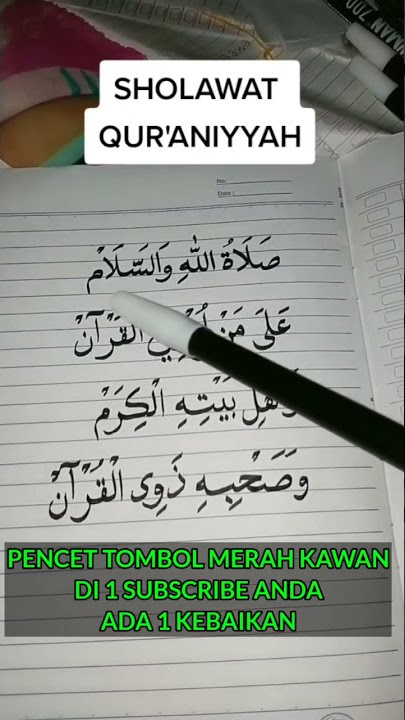 SHOLAWAT
QUR'ANIYYAH
No
Date :
صَلَاةُ اللهِ وَالسَّلَامْ
عَلَى مَنْ الْقُرْآنْ
بَيْتِهِ الْكِرَمْ
وَصَحْبِهِ ذَوِى الْقُرْآنْ
PENCET TOMBOL MERAH KAWAN
DI 1 SUBSCRIBE ANDA
ADA 1 KEBAIKAN